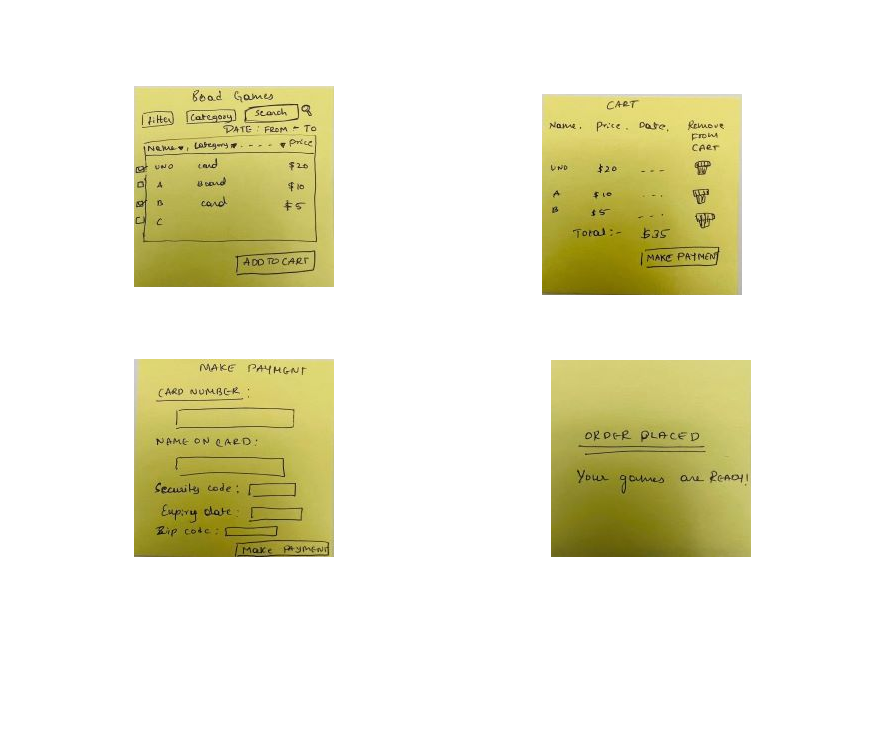 Boad Games
filter Category Search
DATE : FROM - TO
Name , Category - - - - Price
UNO card $20
A Board $10
B card $5
C
ADD TO CART
CART
Name. Price. Date. Remove
FROM
CART
UNO $20 - - -
A $10 - - -
B $5 - - -
Total :- $35
MAKE PAYMENT
MAKE PAYMENT
CARD NUMBER :
NAME ON CARD :
Security code :
Expiry date :
Zip code :
Make PAYMENT
ORDER PLACED
Your games are READY!